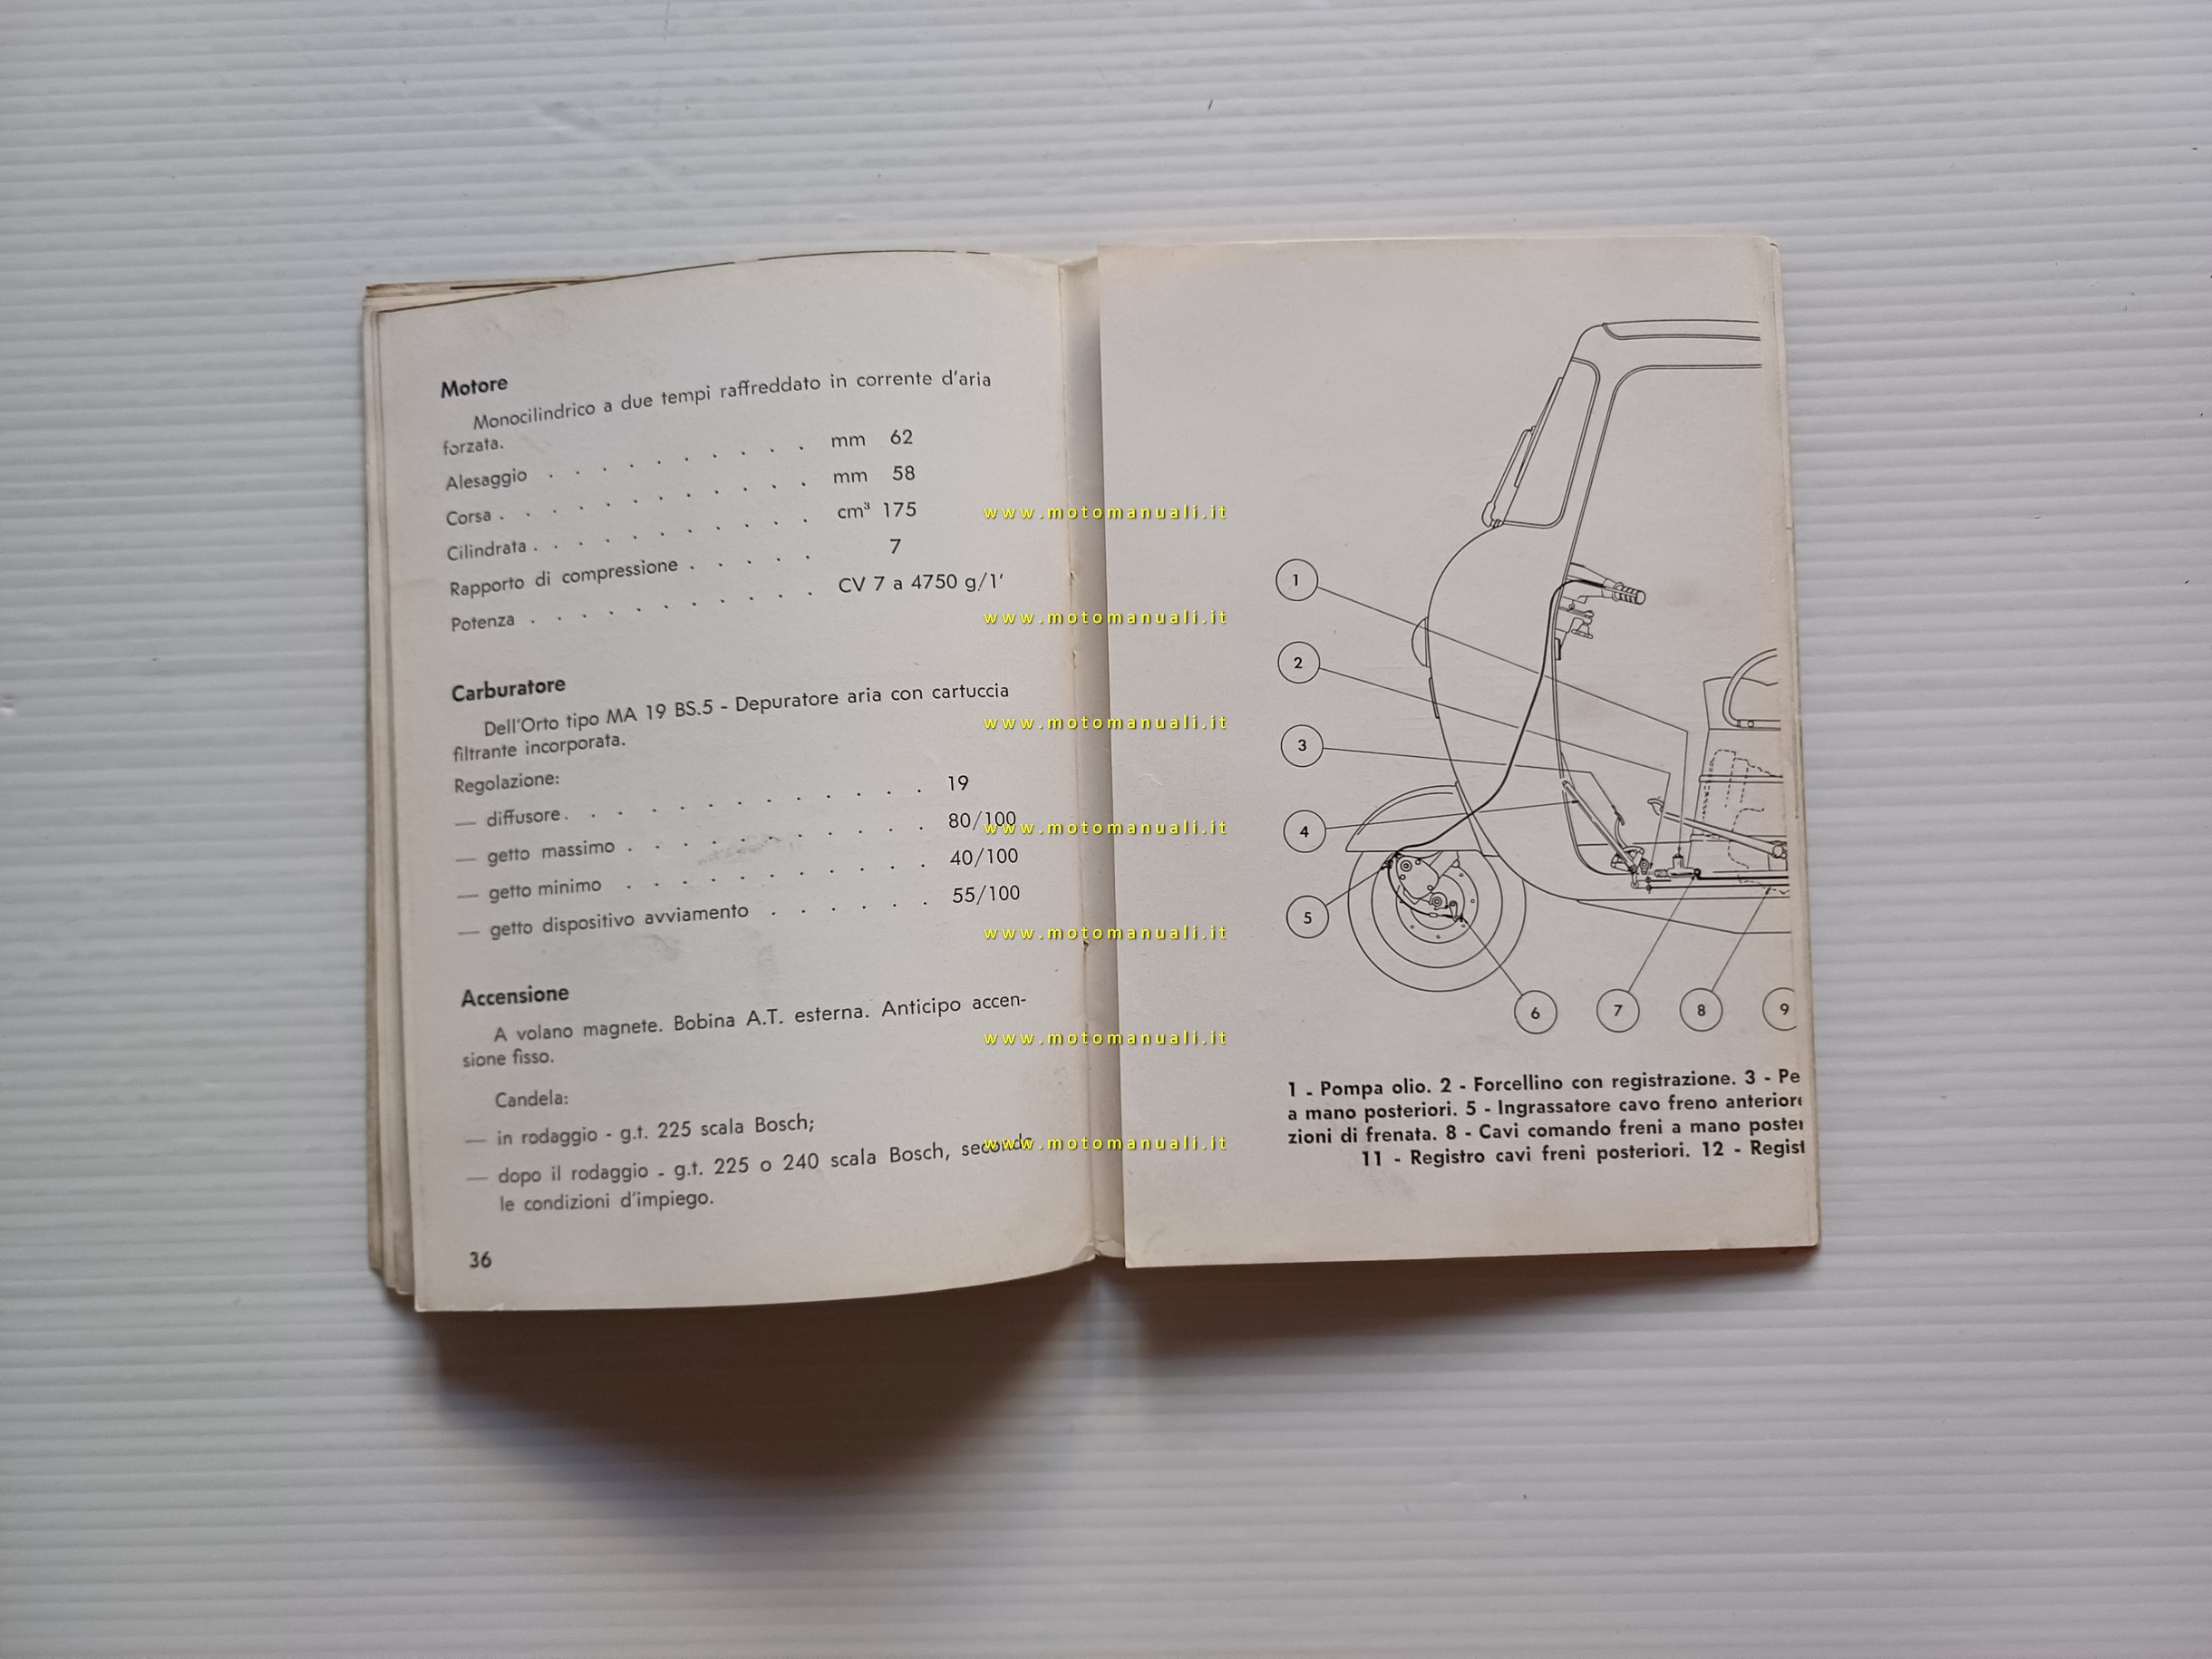 Motore
Monocilindrico a due tempi raffreddato in corrente d'aria
forzata.
Alesaggio . . . . . . . . . . mm 62
Corsa . . . . . . . . . . . . mm 58
Cilindrata . . . . . . . . . . . cm³ 175
Rapporto di compressione . . . . . 7
Potenza . . . . . . . . . . . CV 7 a 4750 g/1'
Carburatore
Dell'Orto tipo MA 19 BS.5 - Depuratore aria con cartuccia
filtrante incorporata.
Regolazione:
— diffusore . . . . . . . . . . . . 19
— getto massimo . . . . . . . . . . . 80/100
— getto minimo . . . . . . . . . . . 40/100
— getto dispositivo avviamento . . . . . . 55/100
Accensione
A volano magnete. Bobina A.T. esterna. Anticipo accen-
sione fisso.
Candela:
— in rodaggio - g.t. 225 scala Bosch;
— dopo il rodaggio - g.t. 225 o 240 scala Bosch, secondo
le condizioni d'impiego.
36
1
2
3
4
5
6 7 8 9
1 - Pompa olio. 2 - Forcellino con registrazione. 3 - Pe
a mano posteriori. 5 - Ingrassatore cavo freno anteriore
zioni di frenata. 8 - Cavi comando freni a mano poster
11 - Registro cavi freni posteriori. 12 - Regist
www.motomanuali.it
www.motomanuali.it
www.motomanuali.it
www.motomanuali.it
www.motomanuali.it
www.motomanuali.it
www.motomanuali.it